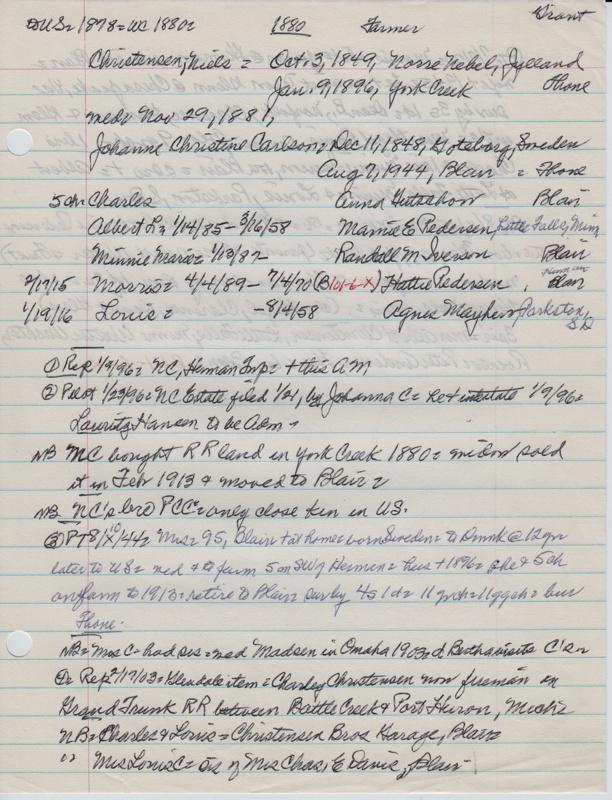 DUS= 1878= WC 1880= 1880 Farmer Grant
Christensen, Niels = Oct. 3, 1849, Norre Nebel, Jylland
Jan. 9, 1896, York Creek Fhone
med= Nov 29, 1881,
Johanne Christine Carlson= Dec 11, 1848, Goteborg, Sweden
Aug 7, 1944, Blair = Fhone
5ch= Charles Anna Gutschow Blair
Albert L= 1/14/85 - 3/16/58 Mamie E Pedersen, Little Falls, Minn
Minnie Marie= 1/13/87 Randall M Iverson Blair
2/17/15 Morris= 4/4/89 - 7/4/70 (B101-6-X) Hattie Pedersen, Blair
1/19/16 Louis= - 8/4/58 Agnes Mayhew Parkston, SD
① Rep 1/9/96= NC, Herman Twp= + this AM
② Pilot 1/23/96= NC Estate filed 1/21, by Johanna C= he + intestate 1/9/96=
Lauritz Hansen to be Adm=
NB NC bought RR land in York Creek 1880= widow sold
it in Feb 1913 & moved to Blair=
NB NC's bro PCC= only close kin in US.
③ PT 8/10/44= Mrs= 95, Blair + at home= born Sweden= to Dnmk @ 12 yr
later to US= med & to farm 5m SW of Herman= hus + 1896= she & 5ch
on farm to 1913= retire to Blair= surby 4s 1d= 11 grch= 11 ggch= bur
Fhone.
NB= Mrs C= had sis= med Madsen in Omaha 1903= d Bertha visits C's=
Or Rep 2/17/03= Glendale item= Charley Christensen now fireman on
Grand Trunk RR between Battle Creek & Port Huron, Mich=
NB= Charles & Louis= Christensen Bros Garage, Blair=
" Mrs Louis C= sis of Mrs Chas. E Davis, Blair